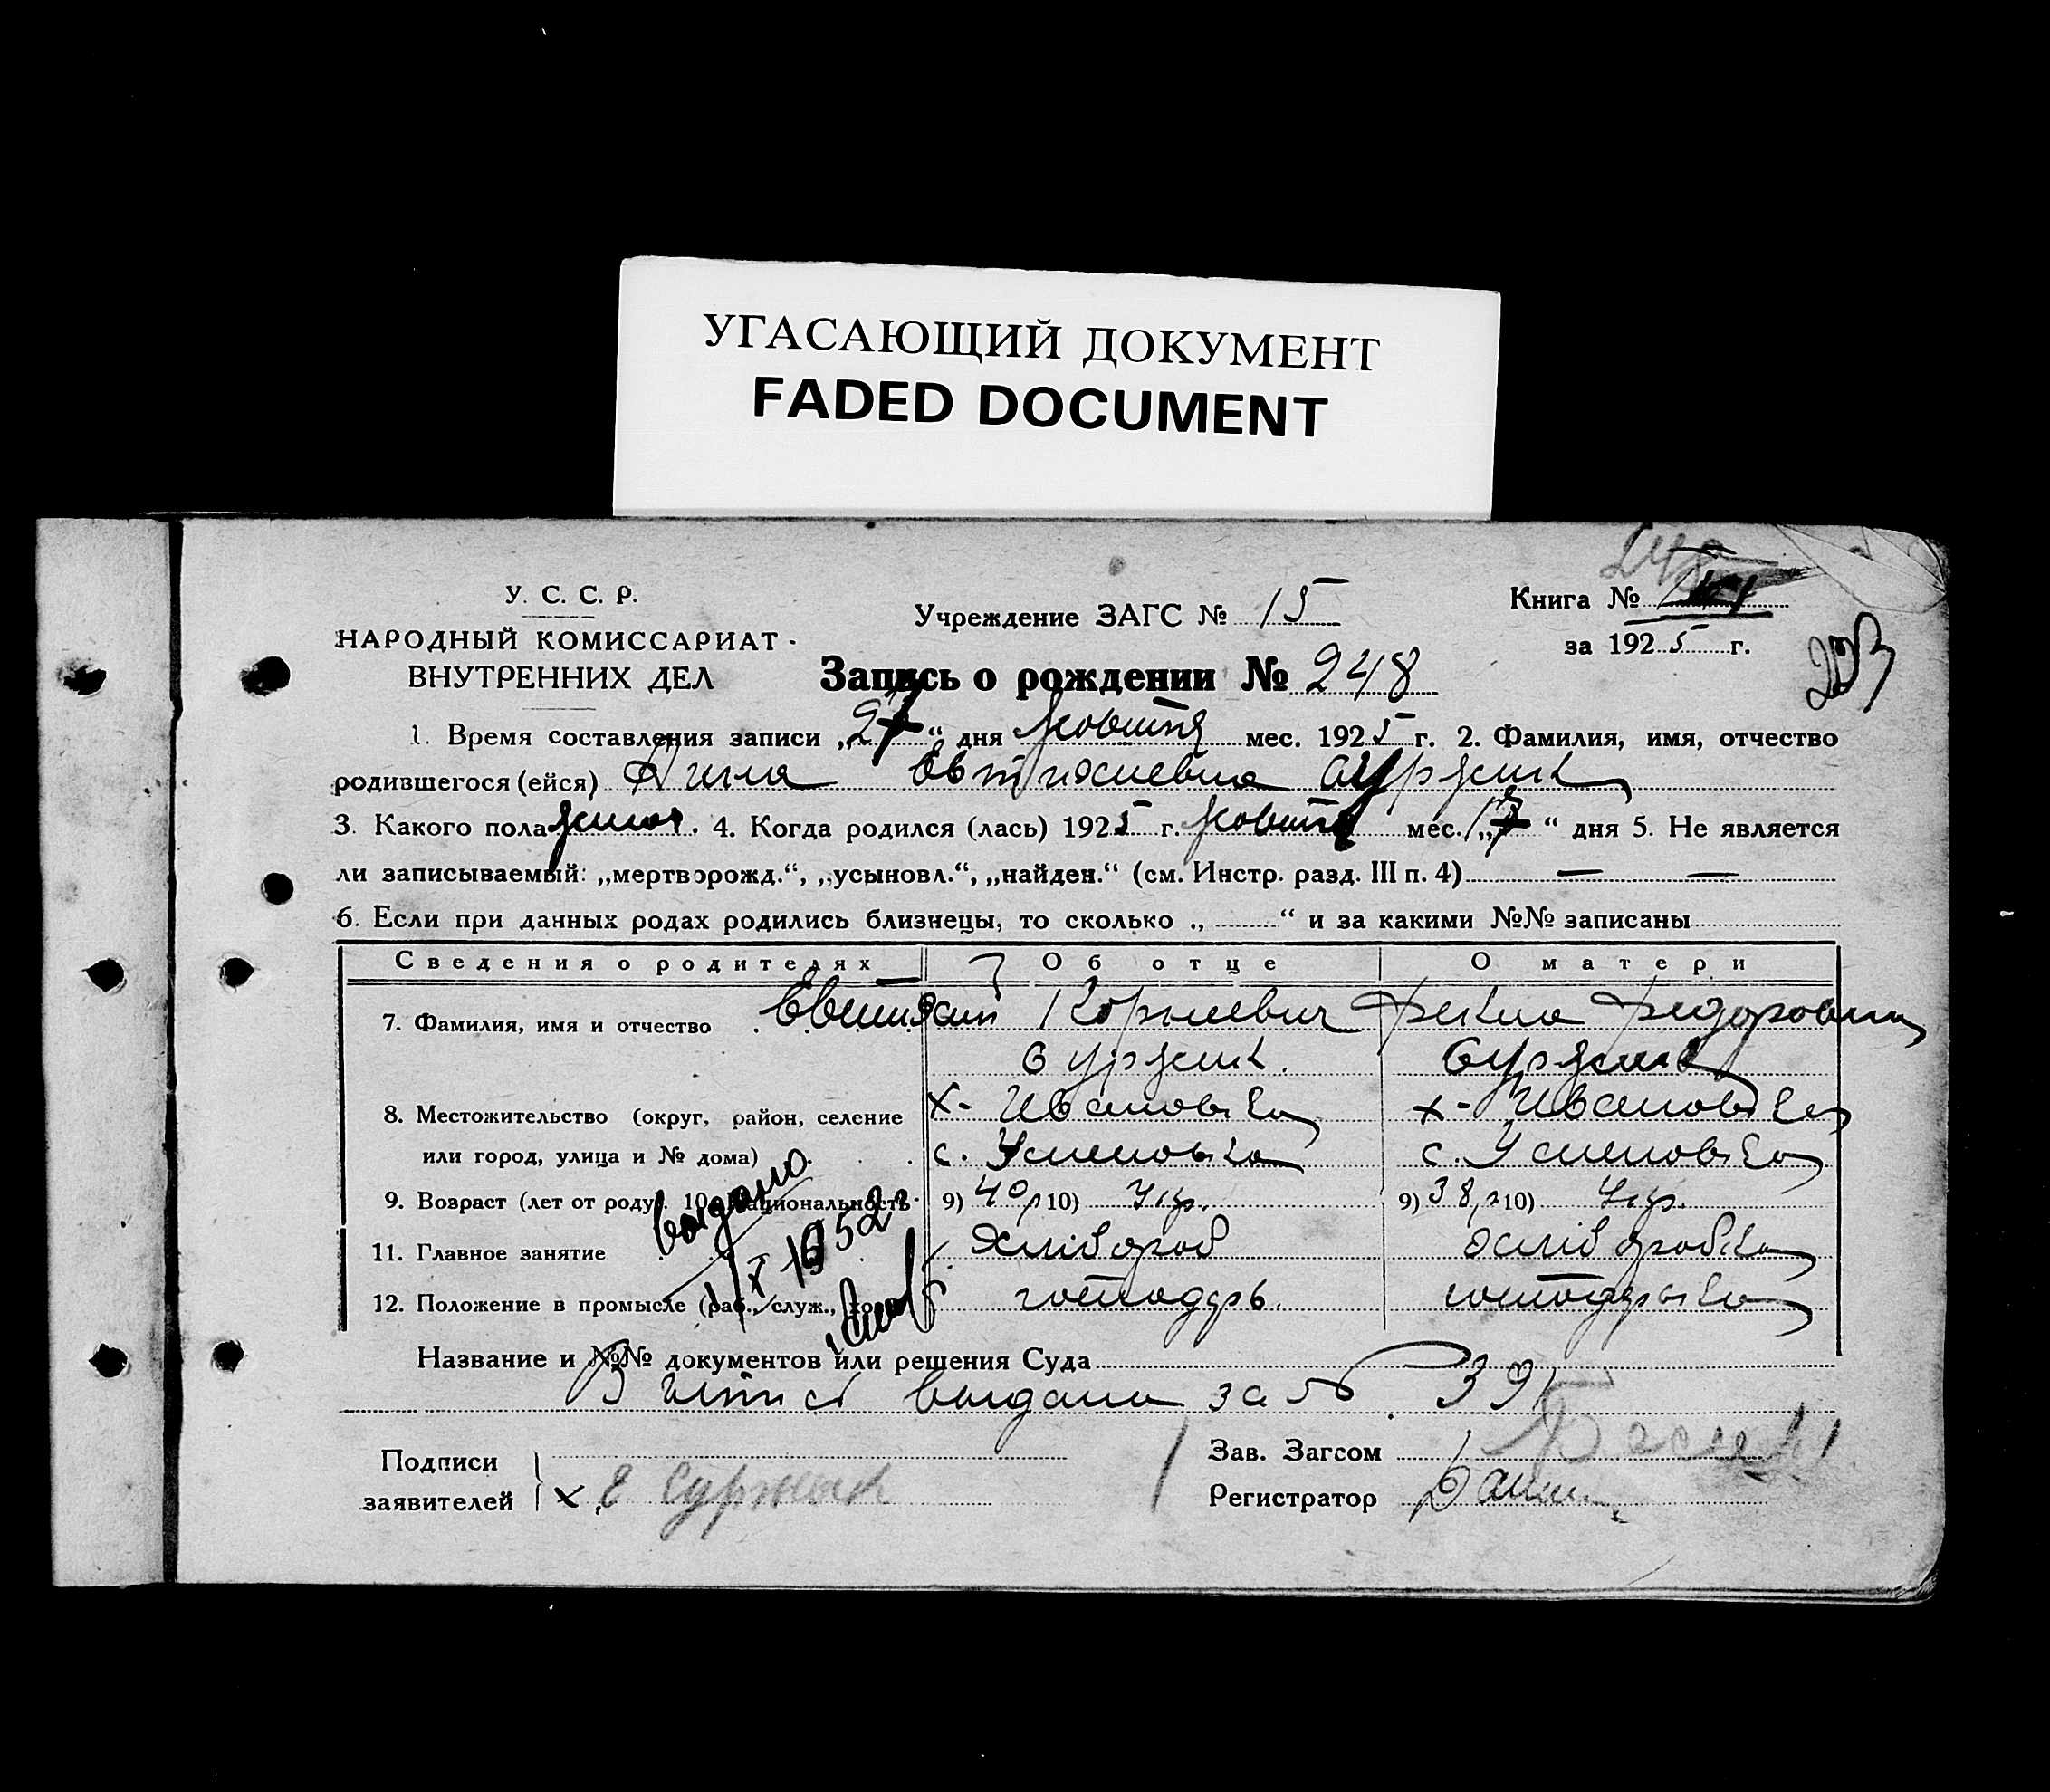 УГАСАЮЩИЙ ДОКУМЕНТ
FADED DOCUMENT
248
У. С. С. Р.
НАРОДНЫЙ КОМИССАРИАТ
ВНУТРЕННИХ ДЕЛ
Учреждение ЗАГС № 15
Книга №
за 1925 г.
203
Запись о рождении № 248
1. Время составления записи „27“ дня Жовтня мес. 1925 г. 2. Фамилия, имя, отчество
родившегося (ейся) Анна Євтихиевна Суржик
3. Какого пола женск. 4. Когда родился (лась) 1925 г. Жовтня мес. „17“ дня 5. Не является
ли записываемый: „мертворожд.“, „усыновл.“, „найден.“ (см. Инстр. разд. III п. 4) — —
6. Если при данных родах родились близнецы, то сколько „ “ и за какими №№ записаны
Сведения о родителях Об отце О матери
7. Фамилия, имя и отчество Евтихий Корнеевич Фекла Федоровна
Суржик. Суржик
8. Местожительство (округ, район, селение х. Ивановка х. Ивановка
или город, улица и № дома) с. Успеновка с. Успеновка
9. Возраст (лет от роду). 10. Национальность 9) 40 10) Укр. 9) 38 10) Укр.
11. Главное занятие Хлібороб хліборобка
12. Положение в промысле (раб., служ., господарь. господарька
Выдано
1/X 1952 г.
Название и №№ документов или решения Суда
Витяг выдано за № 391
Подписи
заявителей х Е Суржык
Зав. Загсом
Регистратор